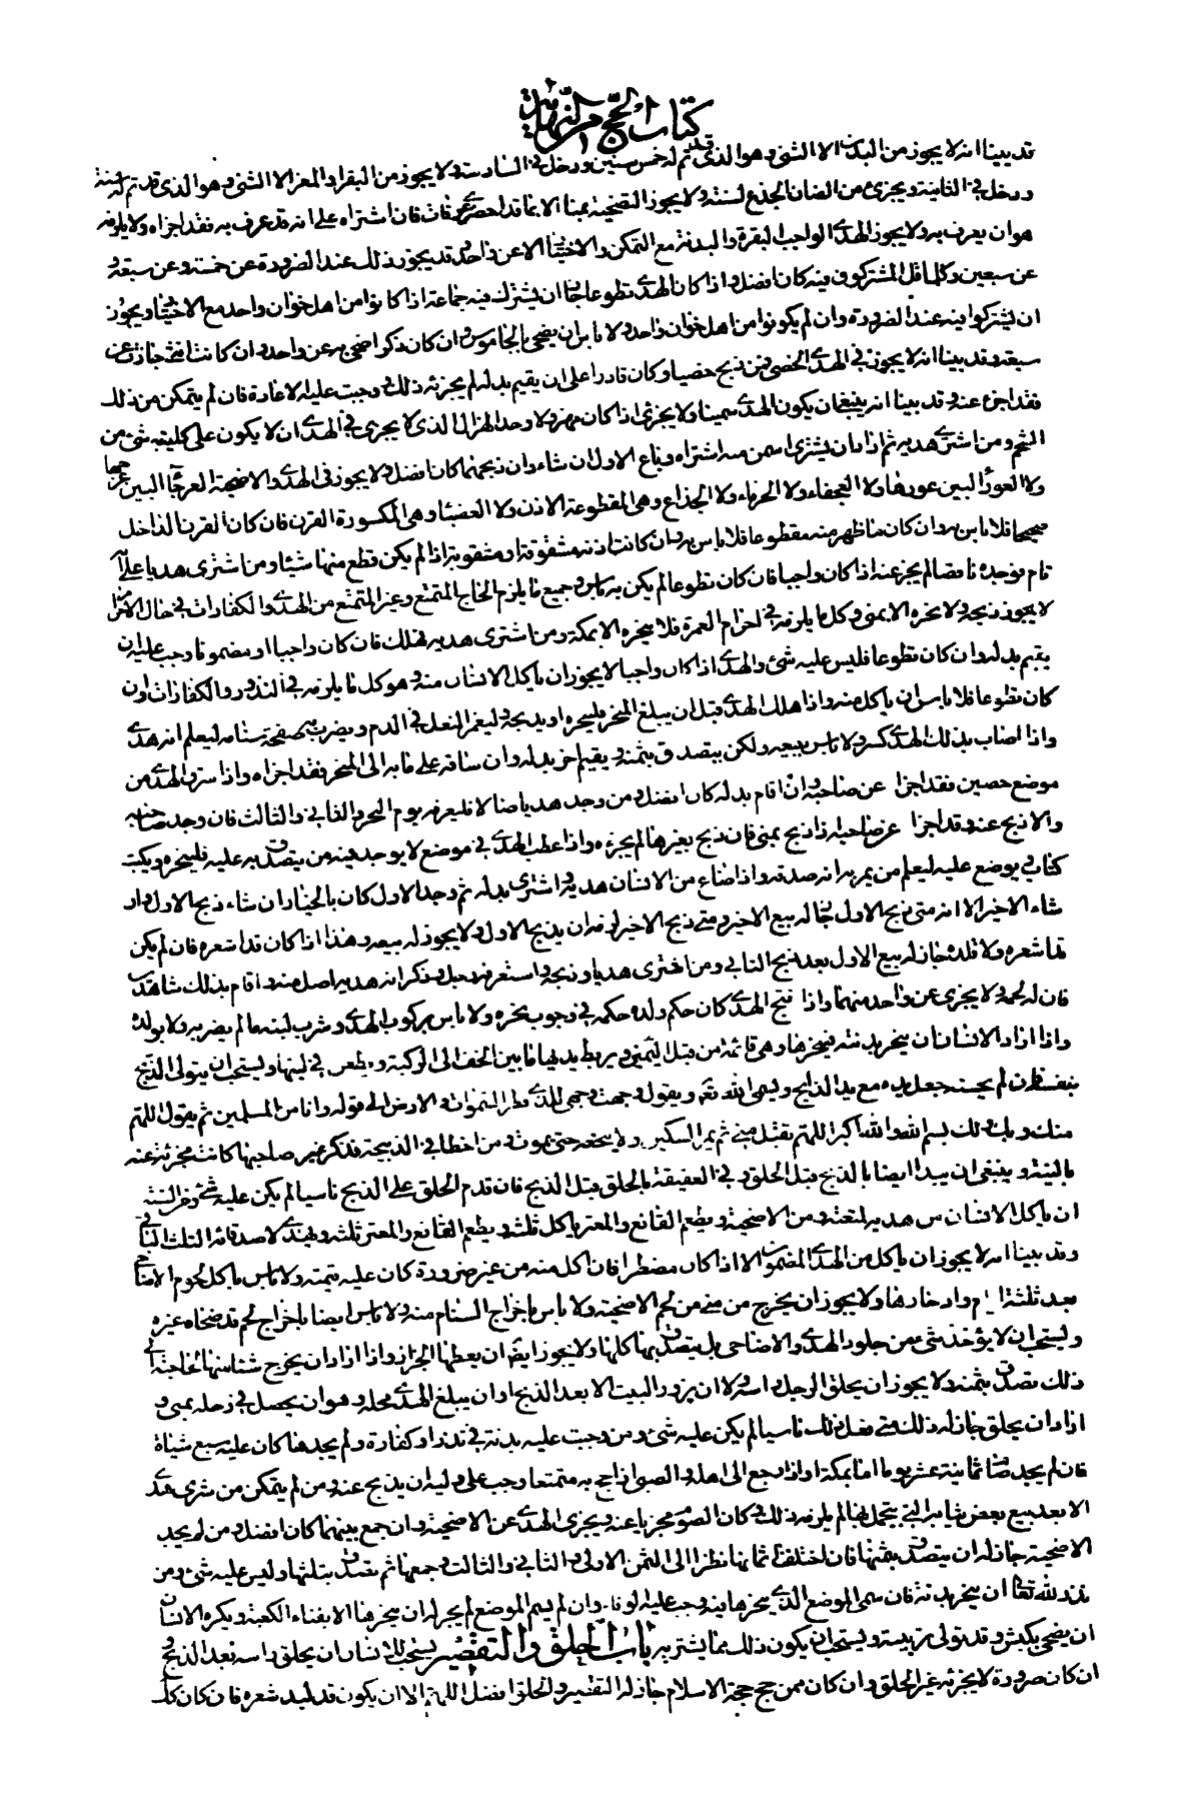 كتاب الحج من النهاية
قد بينا انه لا يجوز من البدن الا الثنى وهو الذى تم له خمس سنين ودخل فى السادسة ولا يجوز من البقر والمعز الا الثنى وهو الذى قد تم له سنة
ودخل فى الثانية ويجزى من الضان الجذع لسنة ولا يجوز التضحية بمنا الا بما قد احضر عرفات فان اشتراه على انه قد عرف به فقد اجزاه ولا يلزمه
هو ان يعرف به ولا يجوز الهدى الواجب البقرة والبدنة مع التمكن والاختيار الا عن واحد وقد يجوز ذلك عند الضرورة عن خمسة وعن سبعة و
عن سبعين وكل ما قل المشتركون فيه كان افضل واذا كان الهدى تطوعا جاز ان يشترك فيه جماعة اذا كانوا من اهل خوان واحد مع الاختيار ويجوز
ان يشتركوا فيه عند الضرورة وان لم يكونوا من اهل خوان واحد ولا باس ان يضحى بالجاموس وان كان ذكرا اضحى به عن واحد وان كانت انثى جازت عن
سبعة وقد بينا انه لا يجوز فى الهدى الخصى ومن ذبح خصيا وكان قادرا على ان يقيم بدله لم يجزئه ذلك ووجبت عليه الاعادة فان لم يتمكن من ذلك
فقد اجزء عنه وقد بينا انه ينبغى ان يكون الهدى سمينا ولا يجزى اذا كان مهزولا وحد الهزال الذى لا يجزى فى الهدى ان لا يكون على كليتيه شئ من
الشحم ومن اشترى هديه ثم اراد ان يشترى اسمن منه اشتراه وباع الاول ان شاء وان ذبحهما كان افضل ولا يجوز فى الهدى والاضحية العرجاء البين عرجها
ولا العوراء البين عورها ولا العجفاء ولا الخرماء ولا الجذاء وهى المقطوعة الاذن ولا العضباء وهى المكسورة القرن فان كان القرن الداخل
صحيحا فلا باس به وان كان ما ظهر منه مقطوعا فلا باس به وان كانت اذنه مشقوقة او مثقوبة اذا لم يكن قطع منها شيئا ومن اشترى هديا على انه
تام فوجده ناقصا لم يجز عنه اذا كان واجبا فان كان تطوعا لم يكن به باس وجميع ما يلزم الحاج المتمتع وغير المتمتع من الهدى والكفارات فى حال الاحرام
لا يجوز ذبحه ولا نحره الا بمنى وكل ما يلزمه فى احرام العمرة فلا ينحره الا بمكة ومن اشترى هديه فهلك فان كان واجبا او مضمونا وجب عليه ان
يقيم بدله وان كان تطوعا فليس عليه شئ والهدى اذا كان واجبا لا يجوز ان ياكل الانسان منه وهو كل ما يلزمه فى النذور والكفارات وان
كان تطوعا فلا باس ان ياكل منه واذا هلك الهدى قبل ان يبلغ المنحر فلينحره او يذبحه وليغمر النعل فى الدم ويضرب به صفحة سنامه ليعلم انه هدى
واذا اصاب بذلك الهدى كسر ولا باس ببيعه ولكن يتصدق بثمنه ويقيم اخر بدله وان ساقه على ما به الى المنحر فقد اجزاه واذا سرق الهدى من
موضع حصين فقد اجزا عن صاحبه وان اقام بدله كان افضل ومن وجد هديا ضالا فليعرفه يوم النحر والثانى والثالث فان وجد صاحبه
والا ذبح عنه وقد اجزا عن صاحبه اذا ذبح بمنى فان ذبح بغيرها لم يجزه واذا عطب الهدى فى موضع لا يوجد فيه من يتصدق به عليه فلينحره ويكتب
كتابا يوضع عليه ليعلم من يمر به انه صدقة واذا ضاع من الانسان هديه واشترى بدله ثم وجد الاول كان بالخيار ان شاء ذبح الاول وان
شاء الاخير الا انه متى ذبح الاول جاز له بيع الاخير ومتى ذبح الاخير لزمه ان يذبح الاول ولا يجوز له بيعه وهذا اذا كان قد اشعره فان لم يكن
قد اشعره ولا قلده جاز له بيع الاول بعد ذبح الثانى ومن اشترى هديا وذبحه واستعرفه رجل وذكر انه هديه اصل منه واقام بذلك شاهدين
فان له لحمه ولا يجزى عن واحد منهما واذا نتج الهدى كان حكم ولده حكمه فى وجوب نحره ولا باس بركوب الهدى وشرب لبنه ما لم يضر به ولا بولده
واذا اراد الانسان ان ينحر بدنته فينحرها وهى قائمة من قبل اليمنى ويربط يديها ما بين الخف الى الركبة ويطعن فى لبتها ويستحب ان يتولى الذبح
بنفسه فان لم يحسنه جعل يده مع يد الذابح ويسمى الله تعالى ويقول وجهت وجهى للذى فطر السموات والارض الى قوله وانا من المسلمين ثم يقول اللهم
منك وبك ولك بسم الله والله اكبر اللهم تقبل منى ثم يمر السكين ولا ينخعه حتى يموت ومن اخطا فى الذبيحة فذكر غير صاحبها كانت مجزئة عنه
بالنية وينبغى ان يبدا ايضا بالذبح قبل الحلق وفى العقيقة بالحلق قبل الذبح فان قدم الحلق على الذبح ناسيا لم يكن عليه شئ ومن السنة
ان ياكل الانسان من هديه لمتعته ومن الاضحية ويطعم القانع والمعتر ياكل ثلثه ويطعم القانع والمعتر ثلثه ويهدى لاصدقائه الثلث الباقى
وقد بينا انه لا يجوز ان ياكل من الهدى المضمون الا اذا كان مضطرا فان اكل منه من غير ضرورة كان عليه قيمته ولا باس باكل لحوم الاضاحى
بعد ثلثة ايام وادخارها ولا يجوز ان يخرج من منى من لحم الاضحية ولا باس باخراج السنام منه ولا باس ايضا باخراج لحم قد ضحاه غيره
ويستحب ان لا يؤخذ شئ من جلود الهدى والاضاحى بل يتصدق بها كلها ولا يجوز ايضا ان يعطيها الجزار واذا اراد ان يخرج شئا منها لحاجته الى
ذلك تصدق بثمنه ولا يجوز ان يحلق الرجل راسه ولا ان يزور البيت الا بعد الذبح او ان يبلغ الهدى محله وهو ان يحصل فى رحله بمنى و
اذا اراد ان يحلق جاز له ذلك متى فعل ذلك ناسيا لم يكن عليه شئ ومن وجبت عليه بدنة فى نذر او كفارة ولم يجدها كان عليه سبع شياة
فان لم يجد صام ثمانية عشر يوما اما بمكة او اذا رجع الى اهله والصبى اذا حج به متمتعا وجب على وليه ان يذبح عنه ومن لم يتمكن من شرى هدى
الا بعد بيع بعض ثيابه التى يتجمل بها لم يلزمه ذلك وكان الصوم مجزيا عنه ويجزى الهدى عن الاضحية وان جمع بينهما كان افضل ومن لم يجد
الاضحية جاز له ان يتصدق بثمنها فان اختلف اثمانها نظر الى الثمن الاول والثانى والثالث وجمعها ثم تصدق بثلثها وليس عليه شئ ومن
نذر لله تعالى ان ينحر بدنة فان سمى الموضع الذى ينحرها فيه وجب عليه الوفاء وان لم يسم الموضع لم يجز له ان ينحرها الا بفناء الكعبة ويكره الانسان
ان يضحى بكبش وقد تولى تربيته ويستحب ان يكون ذلك مما يشتريه باب الحلق والتقصير يستحب للانسان ان يحلق راسه بعد الذبح و
ان كان صرورة لا يجزئه غير الحلق وان كان ممن حج حجة الاسلام جاز له التقصير والحلق افضل اللهم الا ان يكون قد لبد شعره فان كان كذلك